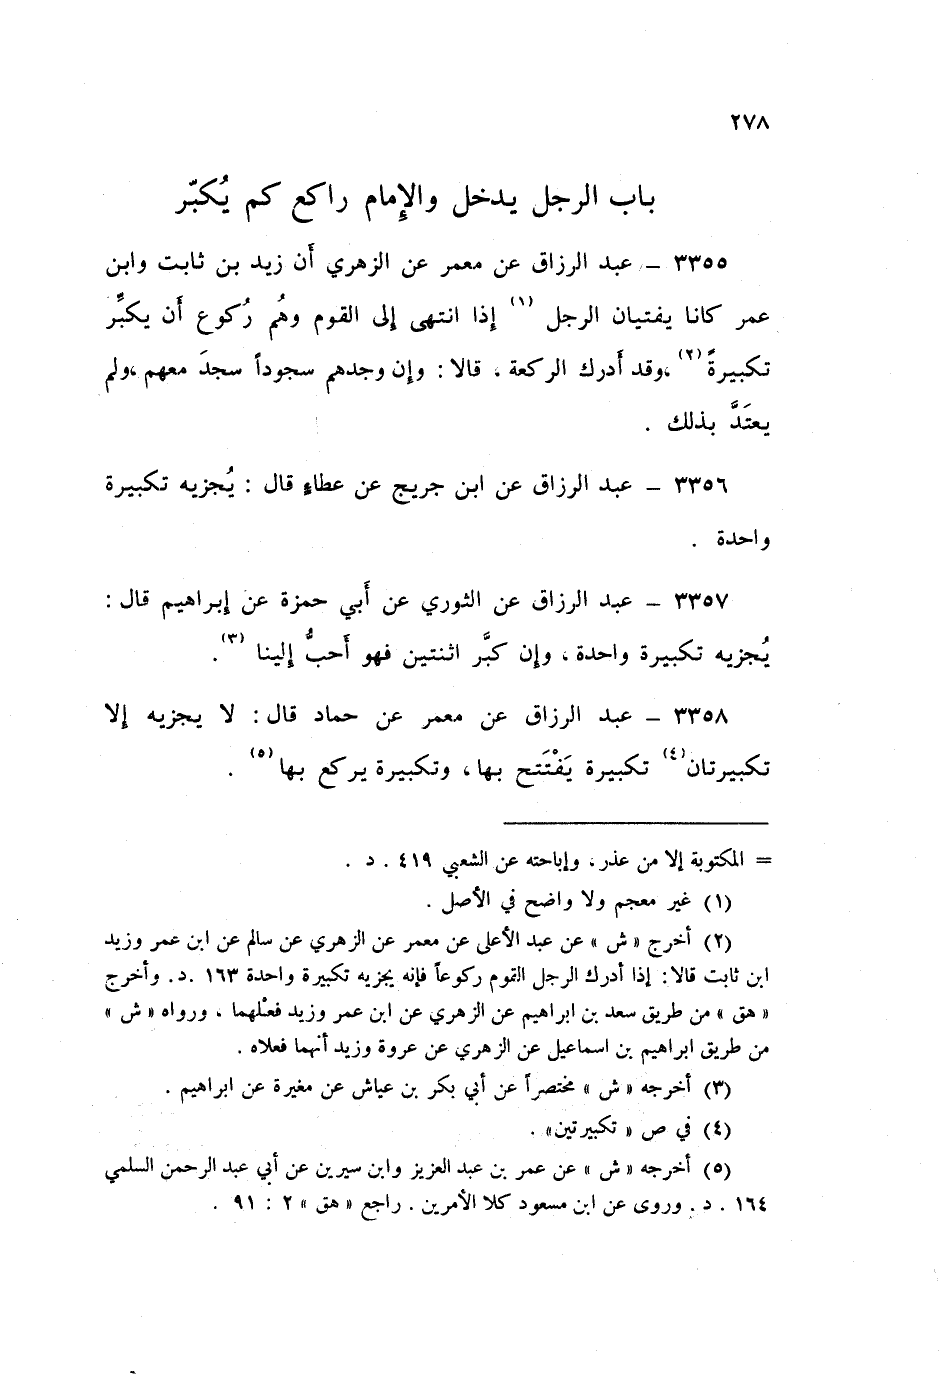 ٢٧٨
باب الرجل يدخل والإمام راكع كم يُكبّر
٣٣٥٥ – عبد الرزاق عن معمر عن الزهري أَن زيد بن ثابت وابن
عمر كانا يفتيان الرجل (١) إذا انتهى إلى القوم وهُم رُكوع أَن يكبِّر
تكبيرةً (٢) ،وقد أَدرك الركعة ، قالا : وإن وجدهم سجوداً سجدَ معهم ،ولم
يعتَدَّ بذلك .
٣٣٥٦ – عبد الرزاق عن ابن جريج عن عطاءٍ قال : يُجزيه تكبيرة
واحدة .
٣٣٥٧ – عبد الرزاق عن الثوري عن أَبي حمزة عن إبراهيم قال :
يُجزيه تكبيرة واحدة ، وإن كبَّر اثنتين فهو أَحبُّ إلينا (٣) .
٣٣٥٨ – عبد الرزاق عن معمر عن حماد قال : لا يجزيه إلا
تكبيرتان (٤) تكبيرة يَفْتَتح بها ، وتكبيرة يركع بها (٥) .
= المكتوبة إلا من عذر ، وإباحته عن الشعبي ٤١٩ . د .
(١) غير معجم ولا واضح في الأصل .
(٢) أخرج « ش » عن عبد الأعلى عن معمر عن الزهري عن سالم عن ابن عمر وزيد
ابن ثابت قالا : إذا أدرك الرجل القوم ركوعاً فإنه يجزيه تكبيرة واحدة ١٦٣ .د. وأخرج
« هق » من طريق سعد بن ابراهيم عن الزهري عن ابن عمر وزيد فعْلهما ، ورواه « ش »
من طريق ابراهيم بن اسماعيل عن الزهري عن عروة وزيد أنهما فعلاه .
(٣) أخرجه « ش » مختصراً عن أبي بكر بن عياش عن مغيرة عن ابراهيم .
(٤) في ص « تكبيرتين» .
(٥) أخرجه « ش » عن عمر بن عبد العزيز وابن سيرين عن أبي عبد الرحمن السلمي
١٦٤ . د . وروى عن ابن مسعود كلا الأمرين . راجع « هق » ٢ : ٩١ .